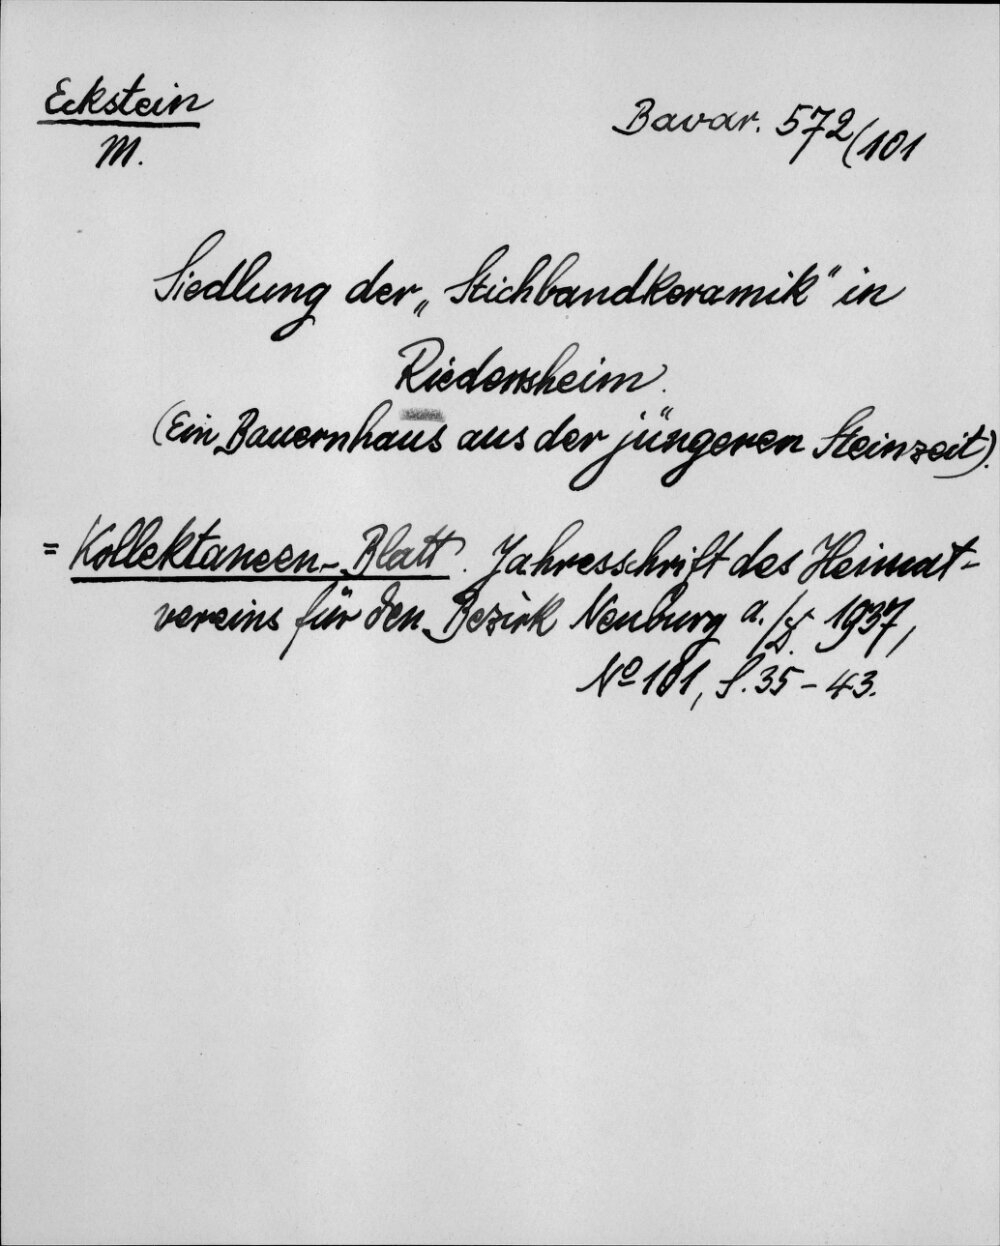 Eckstein
M.
Bavar. 572(101
Siedlung der „Stichbandkeramik“ in
Riedensheim.
(Ein Bauernhaus aus der jüngeren Steinzeit).
= Kollektaneen-Blatt. Jahresschrift des Heimat-
vereins für den Bezirk Neuburg a./D. 1937,
No 101, S. 35 – 43.